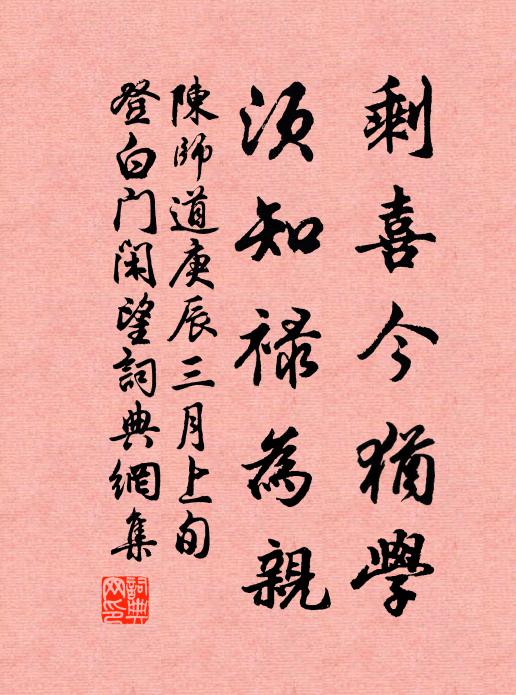 剩喜今猶學
須知祿為親
陳師道庚辰三月上旬
登白门闲望詞典網集
詞典网印